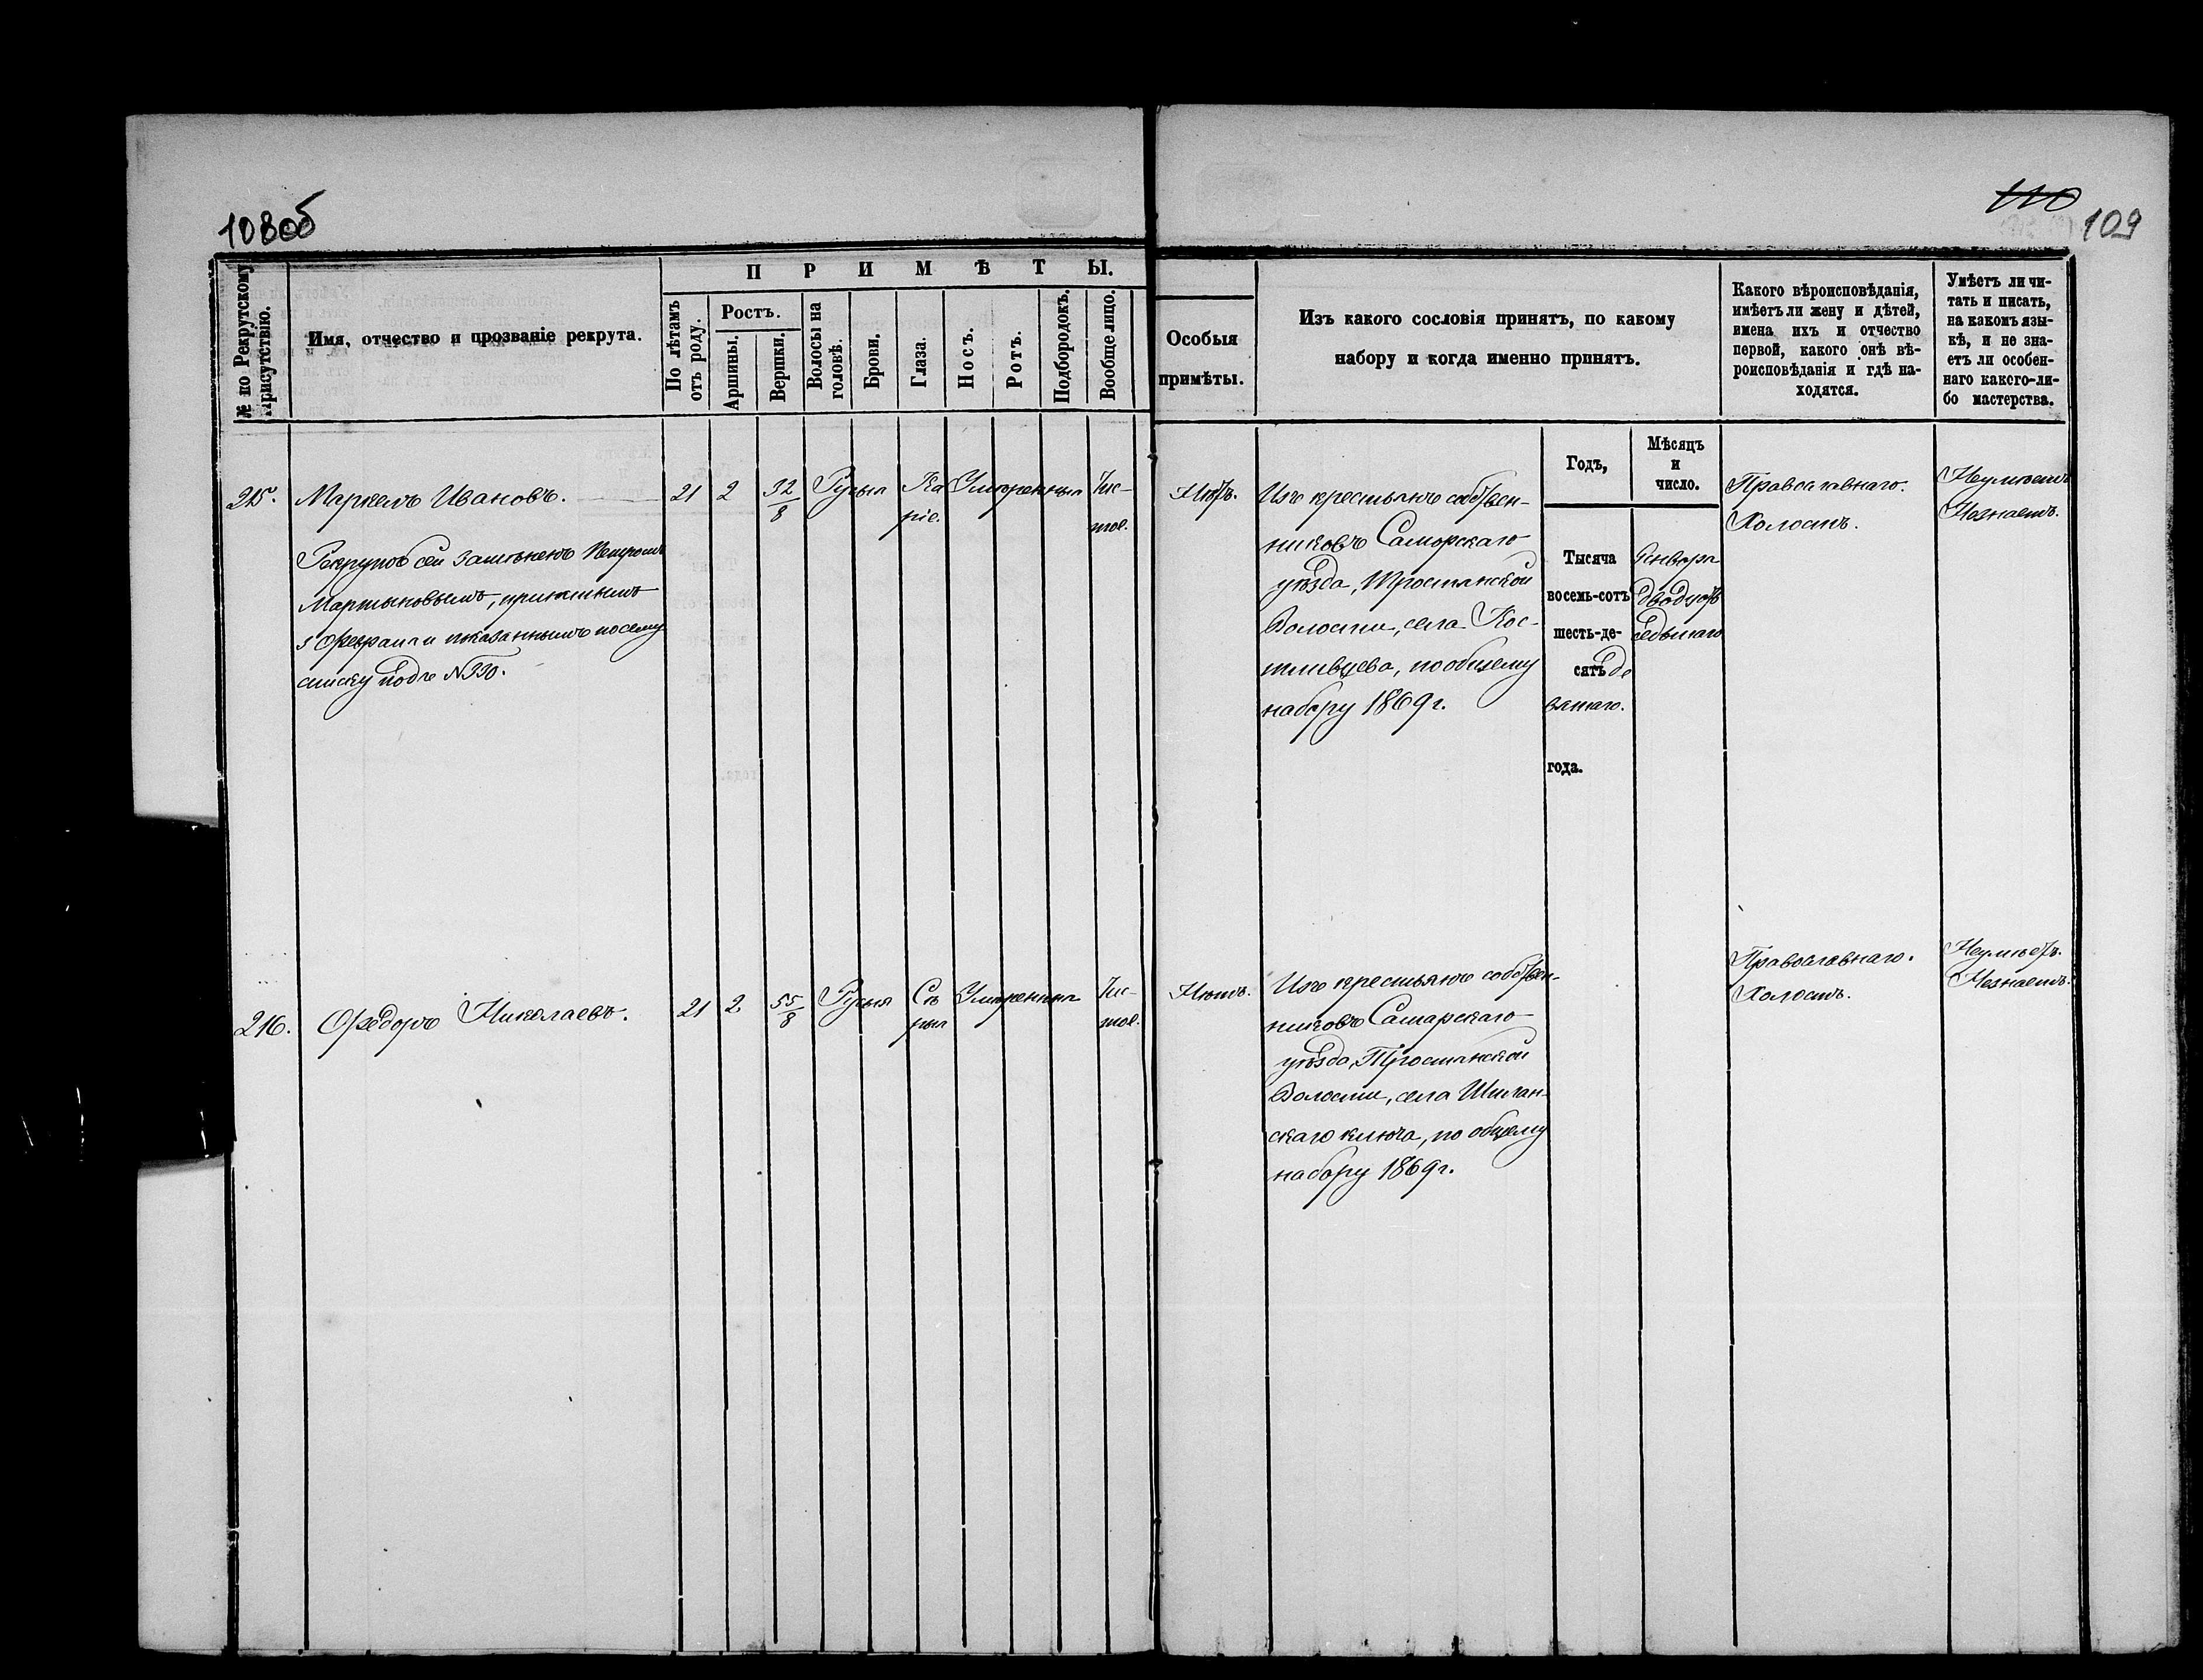 108об
110
109
№ по Рекрутскому Присутствію.
Имя, отчество и прозваніе рекрута.
ПРИМѢТЫ.
По лѣтамъ отъ роду.
Ростъ.
Аршины.
Вершки.
Волосы на головѣ.
Брови.
Глаза.
Носъ.
Ротъ.
Подбородокъ.
Вообще лицо.
Особыя
примѣты.
Изъ какого сословія принятъ, по какому
набору и когда именно принятъ.
Какого вѣроисповѣданія,
имѣетъ ли жену и дѣтей,
имена ихъ и отчество
первой, какого онѣ вѣ-
роисповѣданія и гдѣ на-
ходятся.
Умѣетъ ли чи-
тать и писать,
на какомъ язы-
кѣ, и не зна-
етъ ли особен-
наго какого-ли-
бо мастерства.
Годъ,
Мѣсяцъ
и
число.
215.
Маркелъ Ивановъ.
Рекрутъ сей замѣненъ Петромъ
Мартыновымъ, принятымъ
5 февраля и показаннымъ по сему
списку подъ №330.
21
2
32/8
Русыя
Ка
ріе.
Умѣренныя
Чис-
тое.
Нѣтъ.
Изъ крестьянъ собствен-
никовъ Самарскаго
уѣзда, Тростянской
Волости, села Кос-
тливцева, по общему
набору 1869 г.
Тысяча
восемь-сотъ
шесть-де-
сятъ де
вятаго.
года.
Января
двадцать
седьмаго
Православнаго.
Холостъ.
Неумѣетъ
Незнаетъ.
216.
Ѳедоръ Николаевъ.
21
2
55/8
Русыя
Сѣ
рыя
Умѣренныя
Чис-
тое.
Нѣтъ.
Изъ крестьянъ собствен-
никовъ Самарскаго
уѣзда, Тростянской
Волости, села Шилан-
скаго ключа, по общему
набору 1869 г.
Православнаго.
Холостъ.
Неумѣетъ.
Незнаетъ.